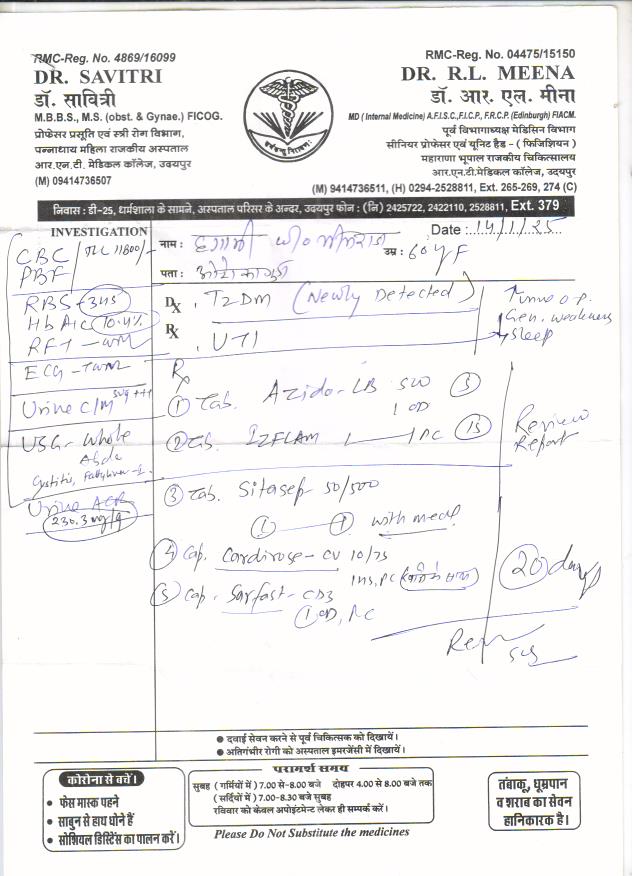 RMC-Reg. No. 4869/16099
DR. SAVITRI
डॉ. सावित्री
M.B.B.S., M.S. (obst. & Gynae.) FICOG.
प्रोफेसर प्रसूति एवं स्त्री रोग विभाग,
पन्नाधाय महिला राजकीय अस्पताल
आर.एन.टी. मेडिकल कॉलेज, उदयपुर
(M) 09414736507
RMC-Reg. No. 04475/15150
DR. R.L. MEENA
डॉ. आर. एल. मीना
MD ( Internal Medicine) A.F.I.S.C.,F.I.C.P., F.R.C.P. (Edinburgh) FIACM.
पूर्व विभागाध्यक्ष मेडिसिन विभाग
सीनियर प्रोफेसर एवं यूनिट हैड - ( फिजिशियन )
महाराणा भूपाल राजकीय चिकित्सालय
आर.एन.टी.मेडिकल कॉलेज, उदयपुर
(M) 9414736511, (H) 0294-2528811, Ext. 265-269, 274 (C)
निवास : डी-25, धर्मशाला के सामने, अस्पताल परिसर के अन्दर, उदयपुर फोन : (नि) 2425722, 2422110, 2528811, Ext. 379
INVESTIGATION
CBC TLC 11800/-
PBF
RBS - 345
HbA1c 10.4%
RFT - WNL
ECG - TWNL
Urine C/M sug +++
USG - Whole
Abd
Cystitis, Fattyliver-I
Urine ACR
230.3 mg/g
नाम : W/o
Date : 14/1/25
उम्र : 60 y F
पता :
Dx . T2DM (Newly Detected)
Rx . UTI
Gen. weakness
sleep
Rx
① Tab. Azido-LB 500 ⑤
1 OD
② Tab. IZFLAM PC ⑮
Review
Report
③ Tab. Sitasep 50/500
① ① with meal
④ Cap. Cardirose - CV 10/75
1 HS, PC
⑤ Cap. Sarfast - CD3
① OD, PC
20 days
● दवाई सेवन करने से पूर्व चिकित्सक को दिखायें।
● अतिगंभीर रोगी को अस्पताल इमरजेंसी में दिखायें।
कोरोना से बचें।
• फेस मास्क पहने
• साबुन से हाथ धोने हैं
• सोशियल डिस्टिंस का पालन करें।
परामर्श समय
सुबह ( गर्मियों में ) 7.00 से-8.00 बजे दोहपर 4.00 से 8.00 बजे तक
(सर्दियों में ) 7.00-8.30 बजे सुबह
रविवार को केवल अपोइंटमेन्ट लेकर ही सम्पर्क करें।
Please Do Not Substitute the medicines
तंबाकू, धूम्रपान
व शराब का सेवन
हानिकारक है।